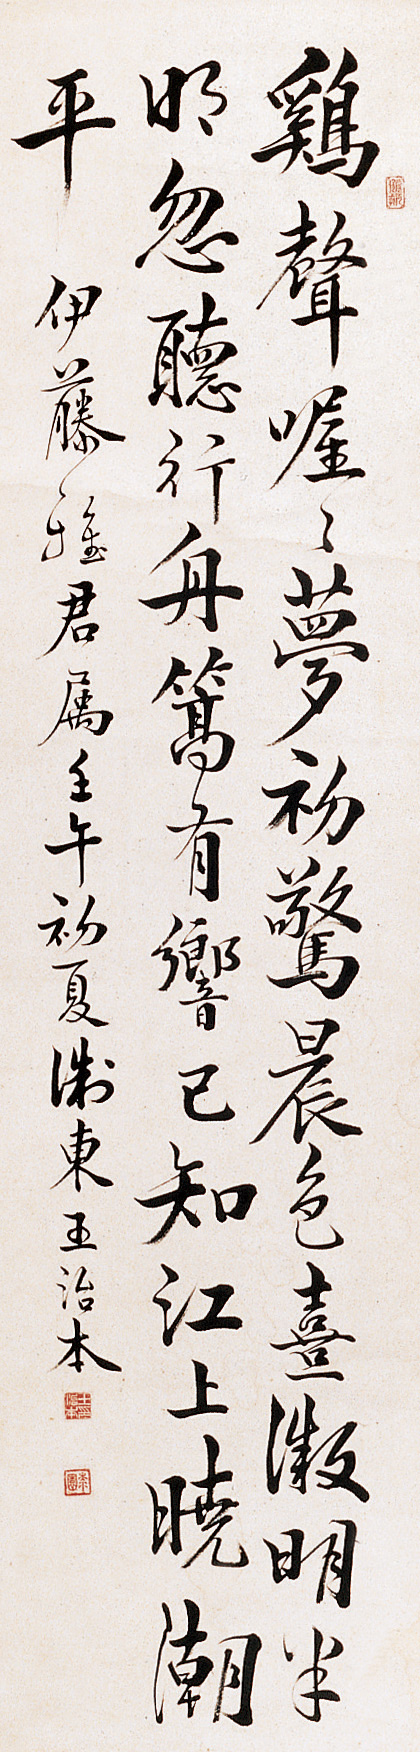 鷄聲喔〻夢初驚晨色熹微明半
明忽聽行舟篙有響已知江上曉潮
平 伊藤君属壬午初夏淛東王治本